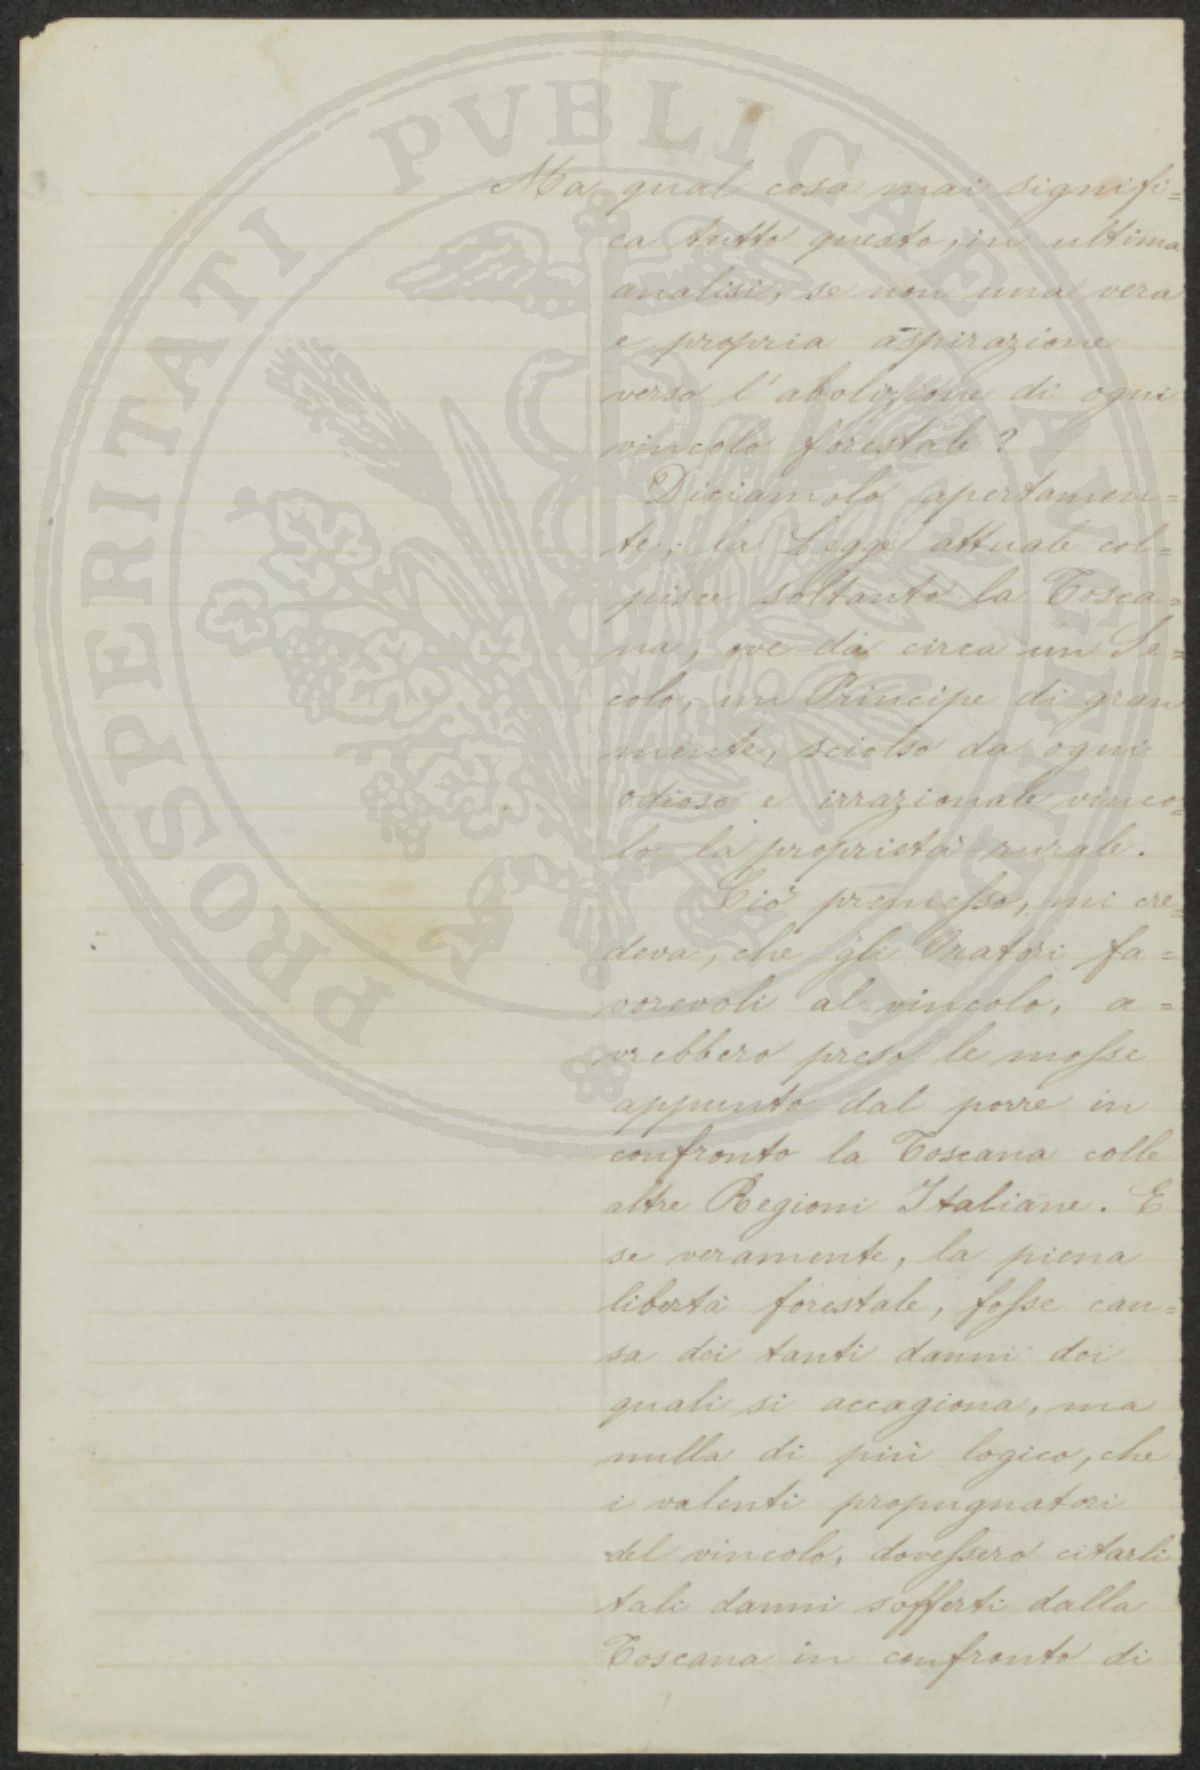 Ma qual cosa mai signifi=
ca tutto questo, in ultima
analisi, se non una vera
e propria aspirazione
verso l'abolizione di ogni
vincolo forestale?
Diciamolo apertamen=
te; la Legge attuale col=
pisce soltanto la Tosca=
na, ove da circa un Se=
colo, un Principe di gran
mente, sciolse da ogni
odioso e irrazionale vinco=
lo la proprietà rurale.
Ciò premesso, mi cre=
deva, che gli Oratori fa=
vorevoli al vincolo, a=
vrebbero preso le mosse
appunto dal porre in
confronto la Toscana colle
altre Regioni Italiane. E
se veramente, la piena
libertà forestale, fosse cau=
sa dei tanti danni dei
quali si accagiona, ma
nulla di più logico, che
i valenti propugnatori
del vincolo, dovessero citarli
tali danni sofferti dalla
Toscana in confronto di
PROSPERITATI PVBLICAE AVGENDAE